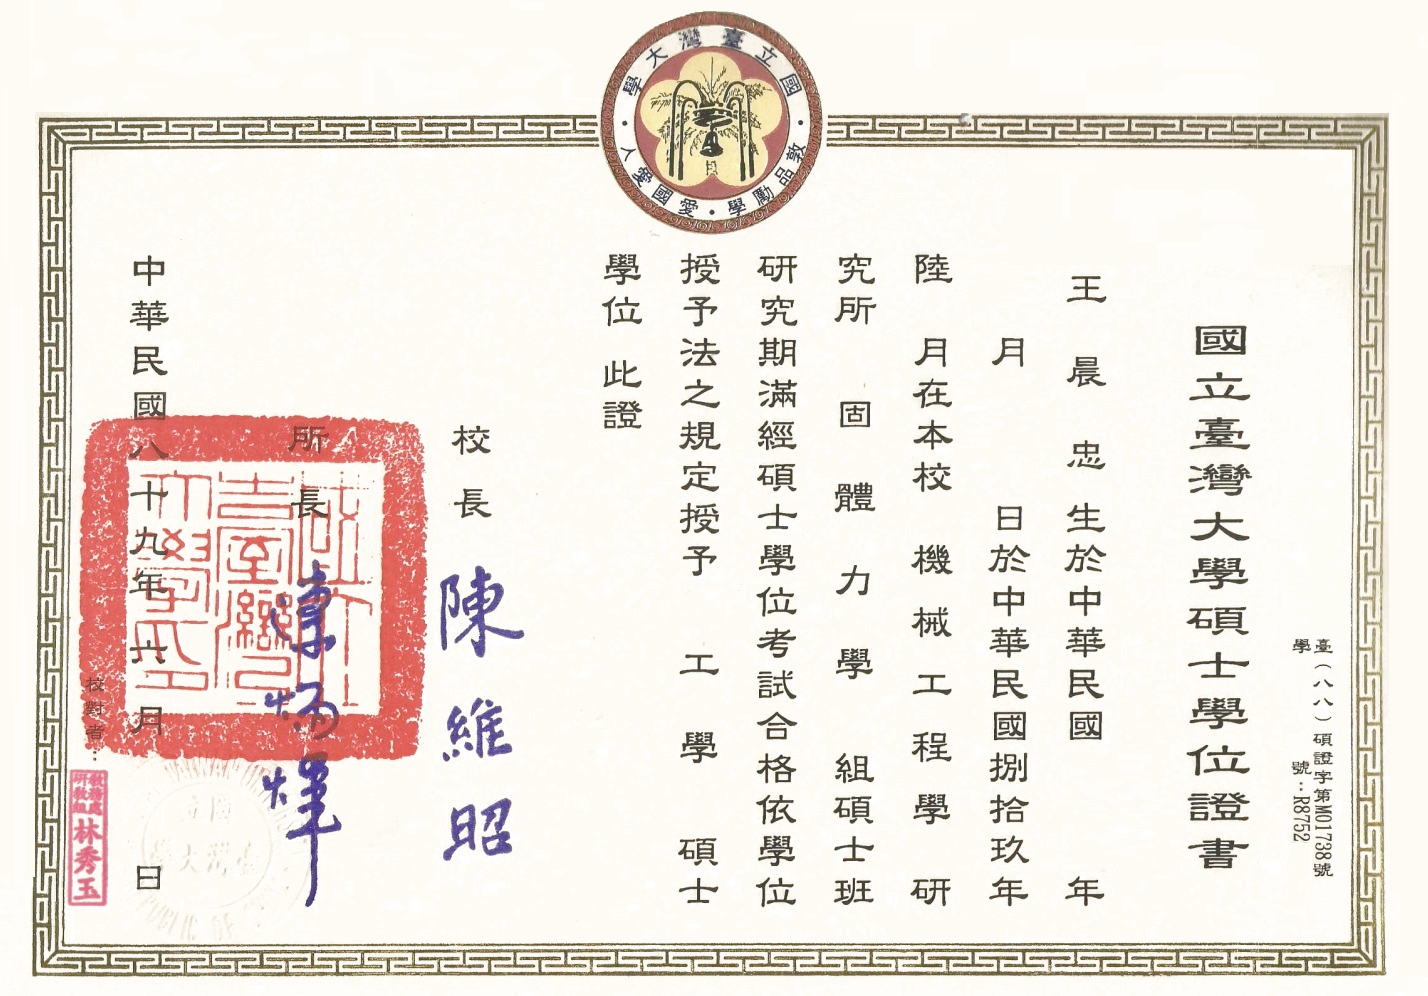 國立臺灣大學
敦品勵學・愛國愛人
臺（八八）碩證字第M01738號
學號：R8752
國立臺灣大學碩士學位證書
王晨忠生於中華民國 年
月 日於中華民國捌拾玖年
陸月在本校機械工程學研
究所固體力學組碩士班
研究期滿經碩士學位考試合格依學位
授予法之規定授予工學碩士
學位此證
校長 陳維昭
所長
中華民國八十九年六月 日
校對者：
教務處
研教組
林秀玉